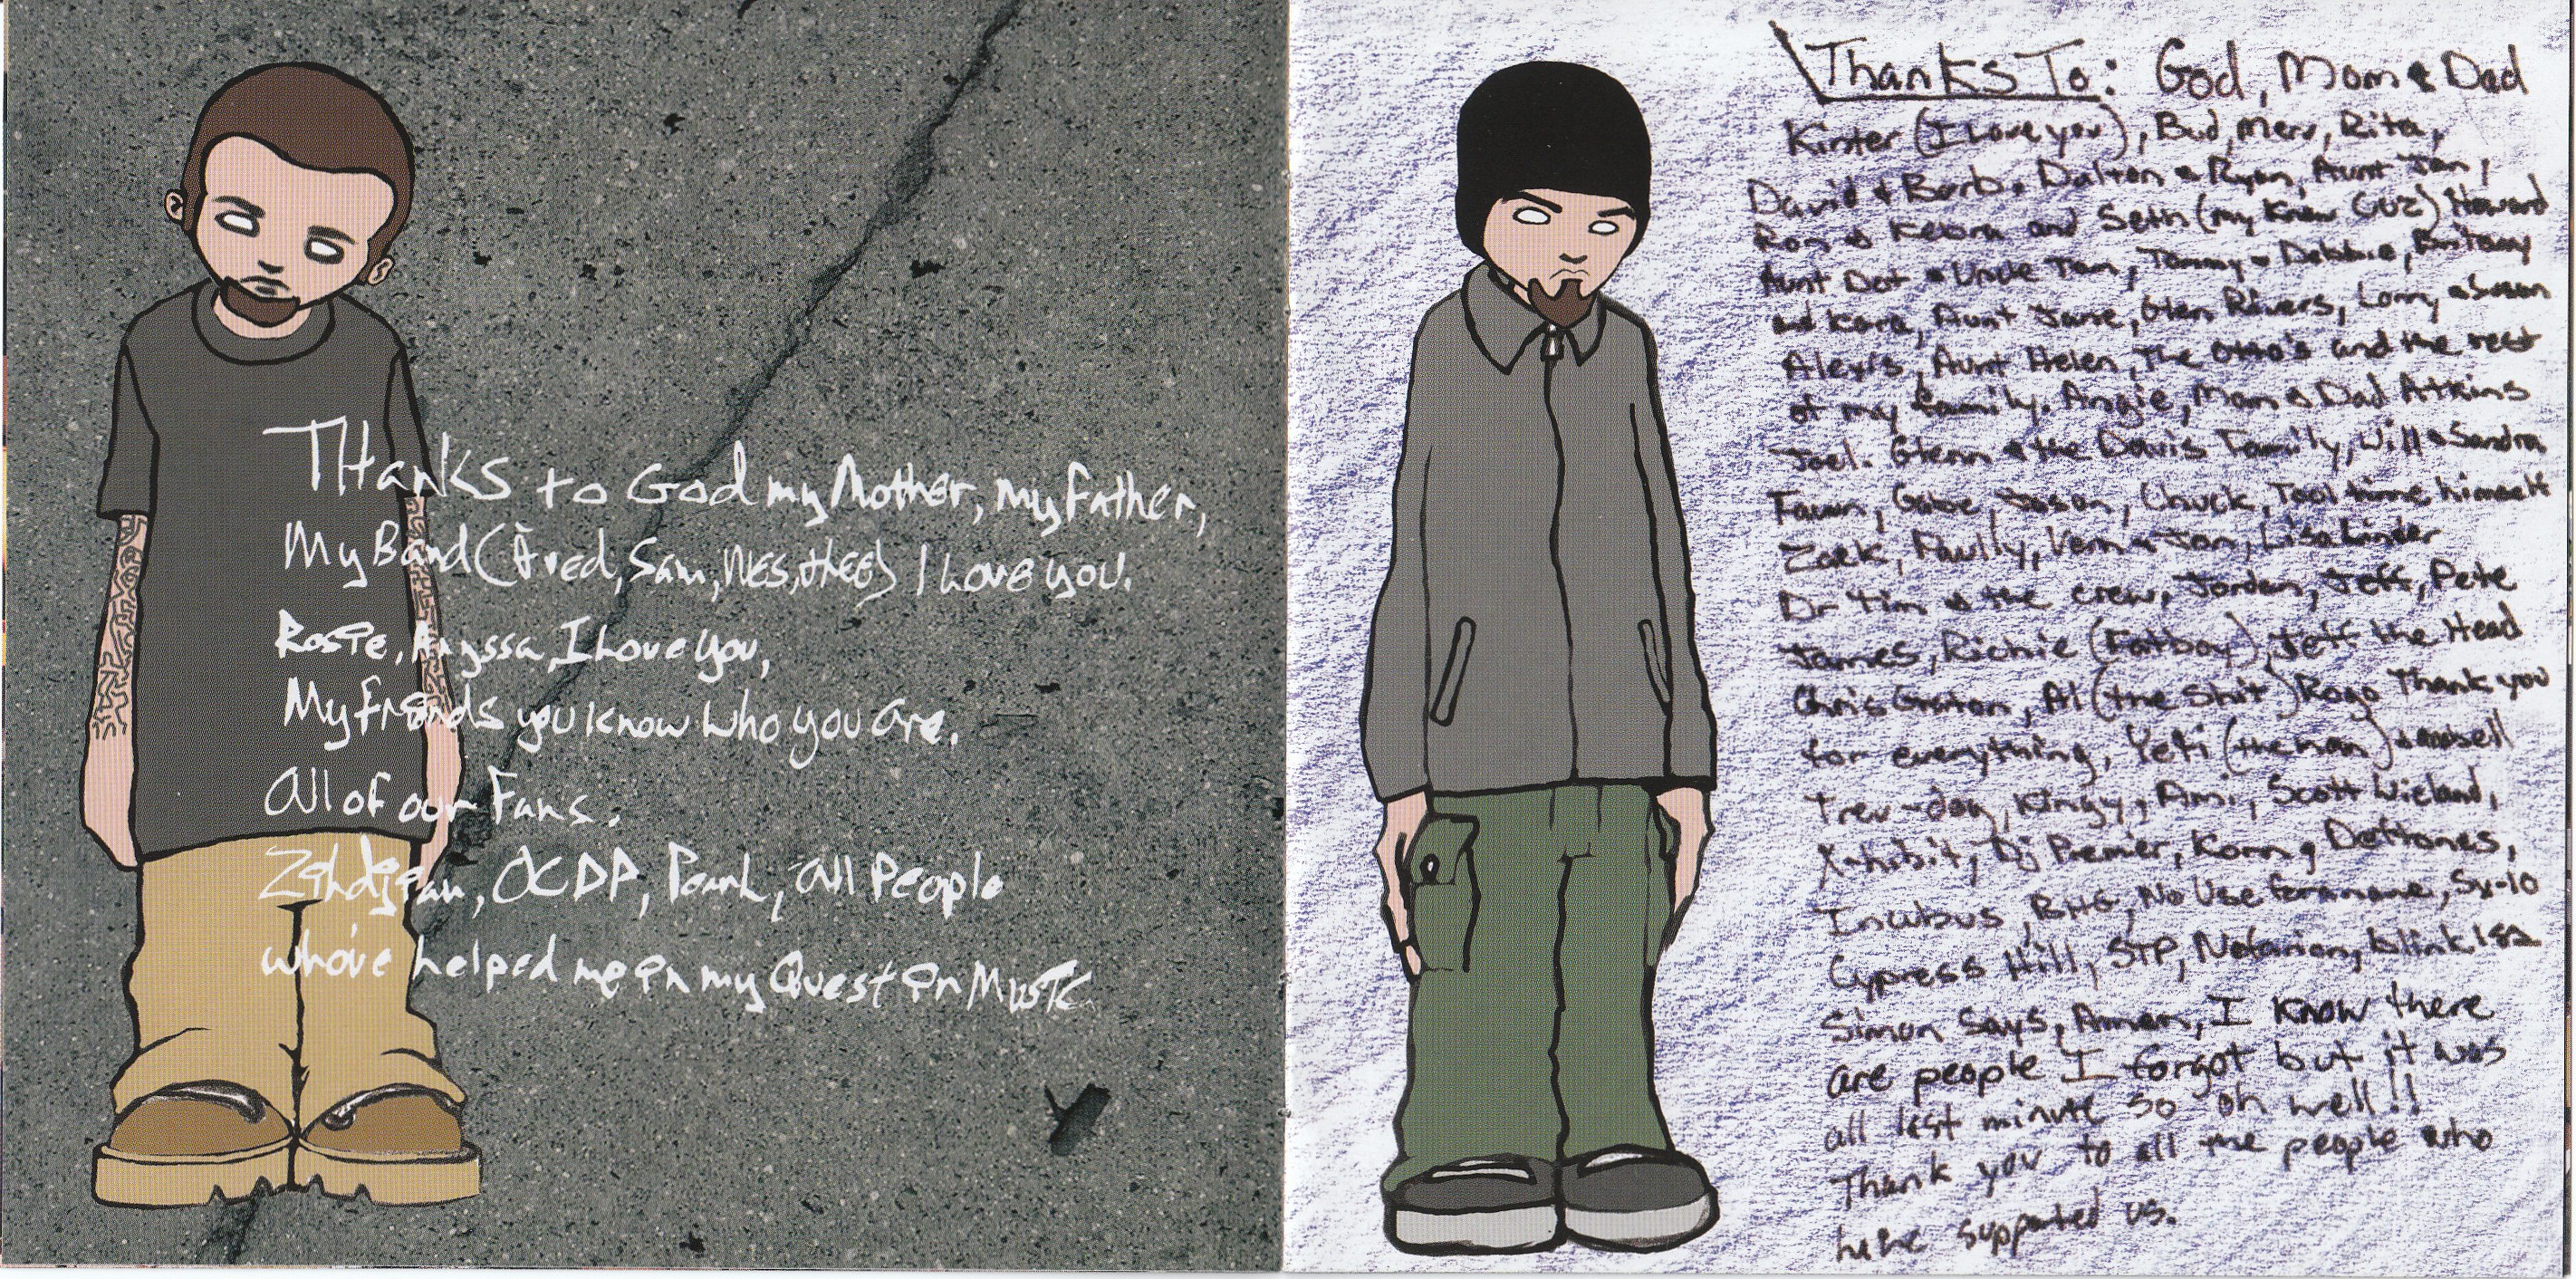 THanks to God my Mother, my Father,
My Band (Fred, Sam, Wes, thee) I Love you.
Rosie, Aryssa, I Love you,
My friends you know who you are.
All of our Fans.
Zildgian, OCDP, Pearl, all People
who've helped me in my Quest in Music
Thanks To: God, Mom & Dad
Kirster (I Love you), Bud, Merv, Rita,
David & Barb, Dalton & Ryan, Aunt Jan,
Ron & and Seth (my Knew Cuz) Howard
Aunt Dot & Uncle Tom, Tommy & Debbie, Britany
and Kara, Aunt Jane, Glen Rivers, Larry & Susan
Alexis, Aunt Helen, The Otto's and the rest
of my family. Angie, Mom & Dad Atkins
Joel. Glenn & the Davis Family, Will & Sandra
Fawn, Gabe, Jason, Chuck, Tool time himself
Zack, Paully, Vern & Jan, Lisa Linder
Dr Tim & the crew, Jordan, Jeff, Pete
James, Richie (Fatboy), Jeff the Head
Chris Al (the shit) Rogo Thank you
for everything, Yeti (the man)
Trev-dog, Kingy, Ami, Scott Wieland,
X-hibit, Dj Premier, Korn, Deftones,
Incubus, BHG, No Use for a name, Sx-10
Cypress Hill, STP, Notarion, blink 182
Simon Says, Amen, I know there
are people I forgot but it was
all last minute so oh well!!
Thank you to all the people who
have supported us.